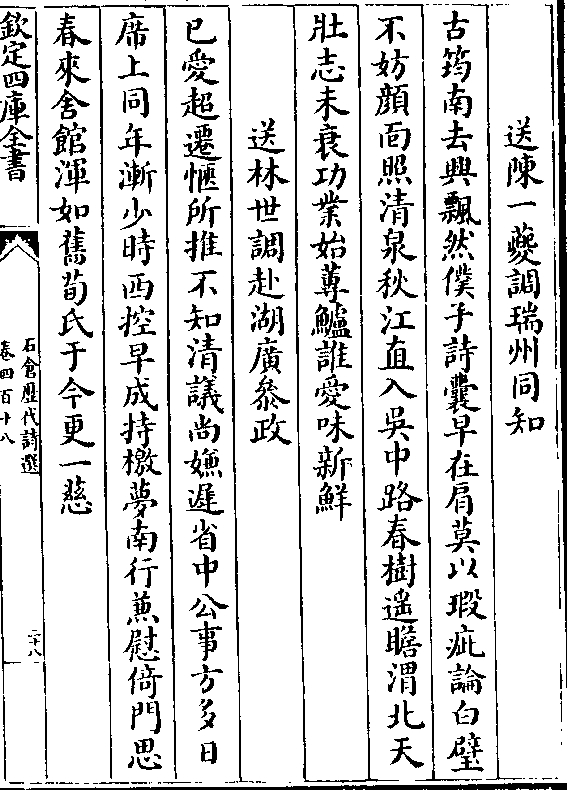 送陳一夔調瑞州同知
古筠南去興飄然僕子詩囊早在肩莫以瑕疵論白璧
不妨顔面照清泉秋江直入吳中路春樹遥瞻渭北天
壯志未衰功業始蓴鱸誰愛味新鮮
送林世調赴湖廣叅政
已愛超遷愜所推不知清議尚嫌遲省中公事方多日
席上同年漸少時西控早成持檄夢南行兼慰倚門思
春來舍館渾如舊荀氏于今更一慈
欽定四庫全書
石倉歷代詩選
卷四百十八
二十八